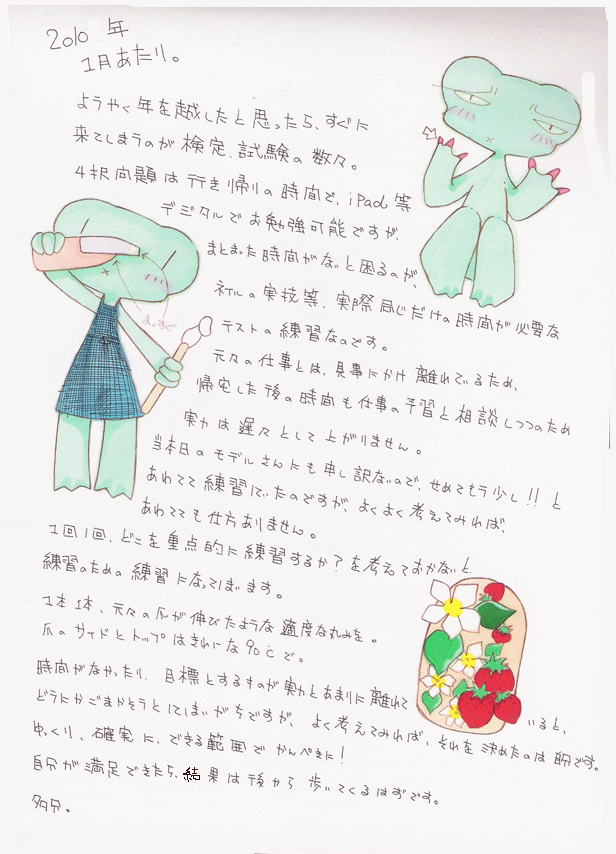 2010年
1月あたり。
ようやく年を越したと思ったら、すぐに
来てしまうのが検定、試験の数々。
4択問題は行き帰りの時間で、iPad等
デジタルでお勉強可能ですが、
まとまった時間がないと困るのが、
ネイルの実技等、実際同じだけの時間が必要な
テストの練習なのです。
元々の仕事とは、見事にかけ離れているため、
帰宅した後の時間も仕事の予習と相談しつつのため
実力は遅々として上がりません。
当本日のモデルさんにも申し訳ないので、せめてもう少し!!と
あわてて練習していたのですが、よくよく考えてみれば、
あわてても仕方ありません。
1回1回、どこを重点的に練習するか?を考えておかないと
練習のための練習になってしまいます。
1本1本、元々の爪が伸びたような適度な丸みを。
爪のサイドとトップはきれいな90℃で。
時間がなかったり、目標とするものが実力とあまりに離れて
いると、
どうにかごまかそうとしてしまいがちですが、よく考えてみれば、それを決めたのは自分です。
ゆっくり、確実に、できる範囲でかんぺきに!
自分が満足できたら、結果は後から歩いてくるはずです。
多分。
まっすぐ